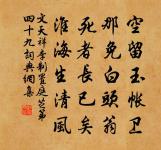 空留玉帐卫
那免白头翁
死者长已矣
淮海生清风
文天祥李制置庭芝第
四十九词典网集